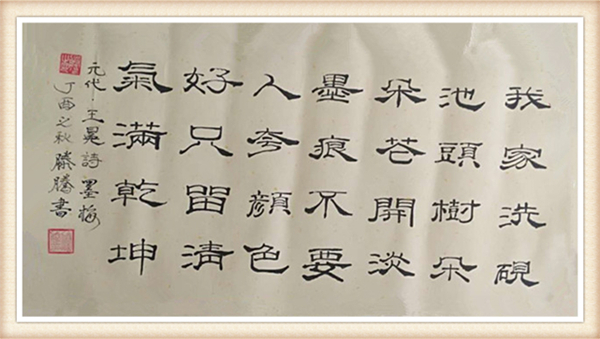 我家洗硯
池頭樹朵
朵花開淡
墨痕不要
人夸顏色
好只留清
氣滿乾坤
元代·王冕詩墨梅
丁酉之秋騰書